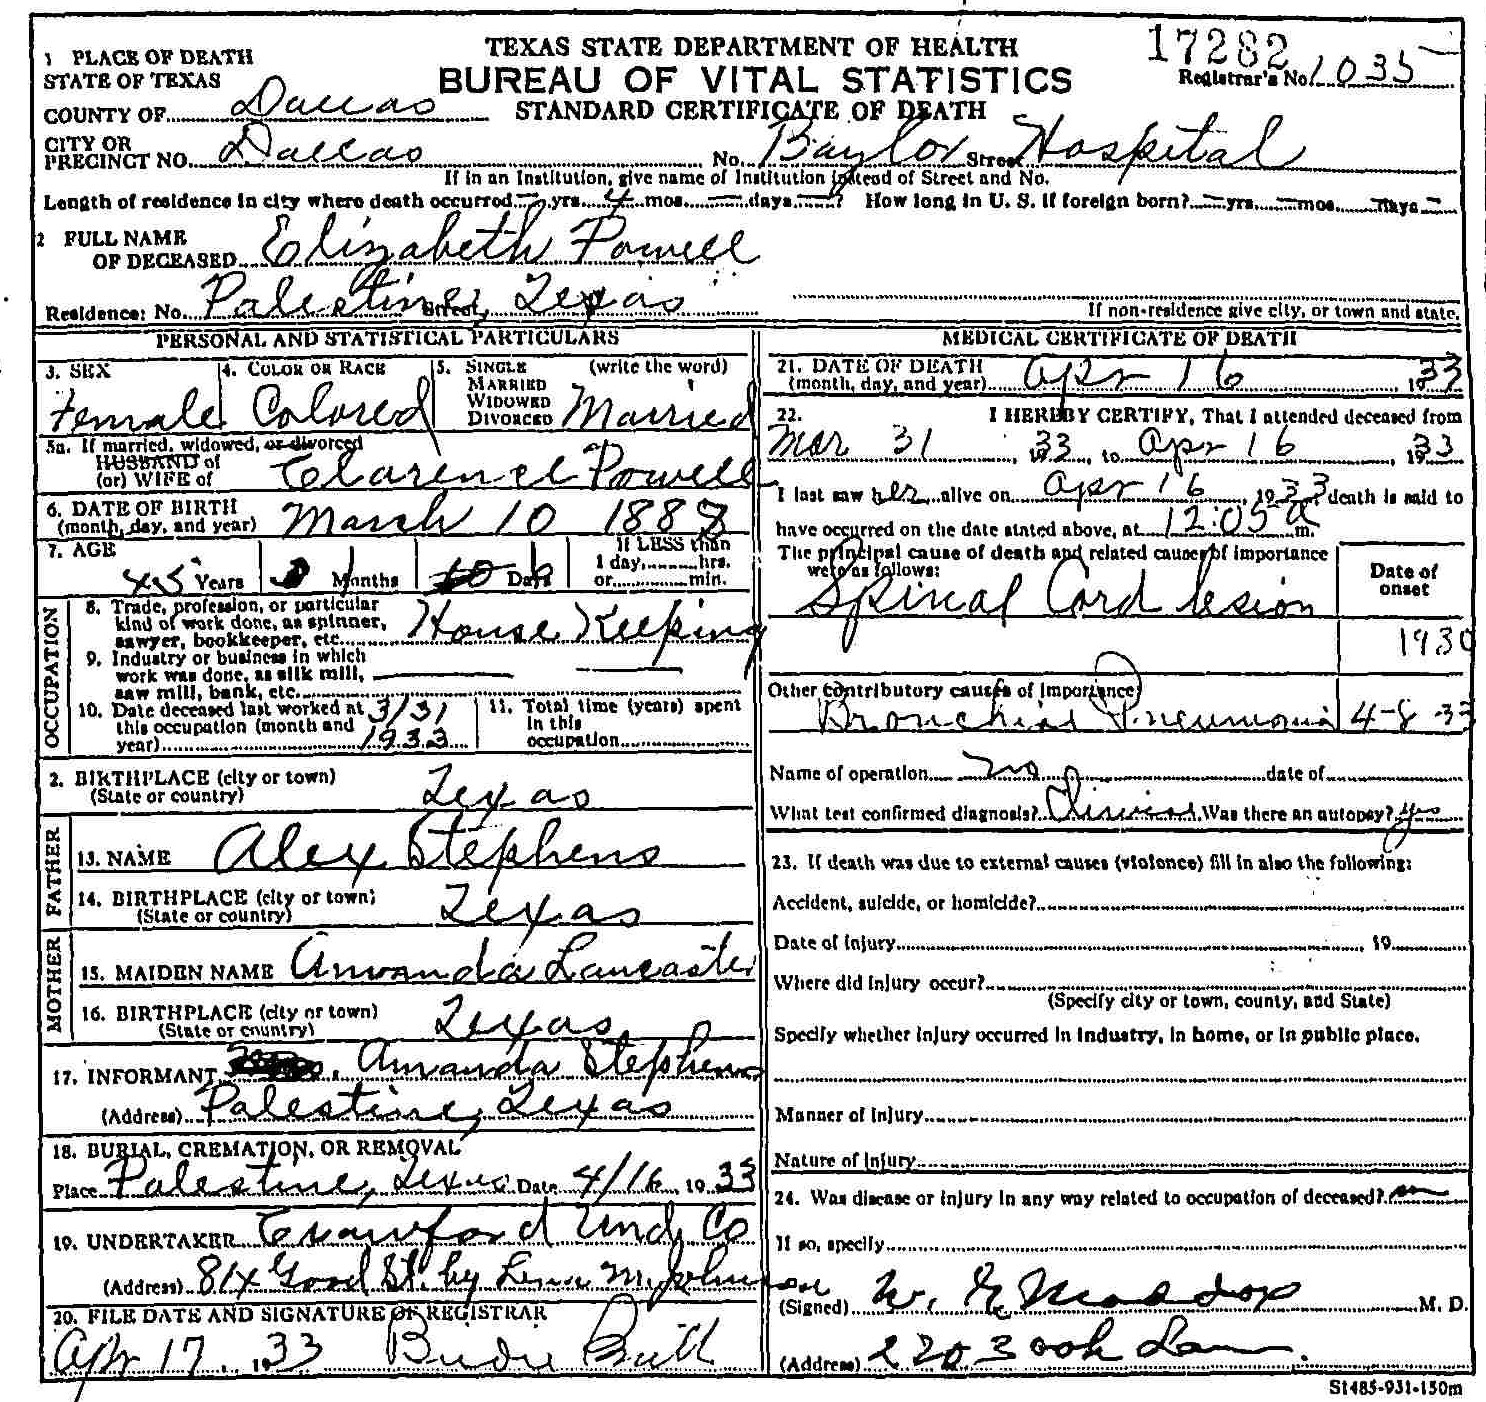 17282
TEXAS STATE DEPARTMENT OF HEALTH
BUREAU OF VITAL STATISTICS
STANDARD CERTIFICATE OF DEATH
Registrar's No. 1035
1 PLACE OF DEATH
STATE OF TEXAS
COUNTY OF Dallas
CITY OR
PRECINCT NO. Dallas No. Baylor Street Hospital
If in an Institution, give name of Institution instead of Street and No.
Length of residence in city where death occurred — yrs. 4 mos. — days — ? How long in U. S. if foreign born? — yrs. — mos. — days —
2 FULL NAME
OF DECEASED Elizabeth Powell
Residence: No. Palestine, Street, Texas
If non-residence give city, or town and state.
PERSONAL AND STATISTICAL PARTICULARS
3. SEX 4. COLOR OR RACE 5. SINGLE (write the word)
MARRIED
WIDOWED
DIVORCED
Female Colored Married
5a. If married, widowed, or divorced
HUSBAND of
(or) WIFE of Clarence Powell
6. DATE OF BIRTH
(month, day, and year) March 10 1888
7. AGE If LESS than
45 Years 1 Months 6 Days 1 day, hrs.
or min.
OCCUPATION
8. Trade, profession, or particular
kind of work done, as spinner,
sawyer, bookkeeper, etc. House Keeping
9. Industry or business in which
work was done, as silk mill,
saw mill, bank, etc.
10. Date deceased last worked at
this occupation (month and
year) 3/31 1933
11. Total time (years) spent
in this
occupation
2. BIRTHPLACE (city or town)
(State or country) Texas
FATHER
13. NAME Alex Stephens
14. BIRTHPLACE (city or town)
(State or country) Texas
MOTHER
15. MAIDEN NAME Amanda Lancaster
16. BIRTHPLACE (city or town)
(State or country) Texas
17. INFORMANT Amanda Stephens
(Address) Palestine, Texas
18. BURIAL, CREMATION, OR REMOVAL
Place Palestine, Texas Date 4/16 1933
19. UNDERTAKER Crawford Und. Co
(Address) 814 Good St. by M. Johnson
20. FILE DATE AND SIGNATURE OF REGISTRAR
Apr 17, 1933
MEDICAL CERTIFICATE OF DEATH
21. DATE OF DEATH
(month, day, and year) Apr 16 1933
22. I HEREBY CERTIFY, That I attended deceased from
Mar 31, 1933, to Apr 16, 1933
I last saw her alive on Apr 16, 1933 death is said to
have occurred on the date stated above, at 12:05 a m.
The principal cause of death and related causes of importance
were as follows:
Date of
onset
Spinal Cord lesion
1930
Other contributory causes of importance:
Bronchial Pneumonia 4-8-33
Name of operation no date of
What test confirmed diagnosis? Was there an autopsy? yes
23. If death was due to external causes (violence) fill in also the following:
Accident, suicide, or homicide?
Date of injury , 19
Where did injury occur?
(Specify city or town, county, and State)
Specify whether injury occurred in industry, in home, or in public place.
Manner of injury
Nature of injury
24. Was disease or injury in any way related to occupation of deceased?
If so, specify
(Signed) W. E. Maddox M. D.
(Address) 2203 Oak Lawn.
S1485-931-150m